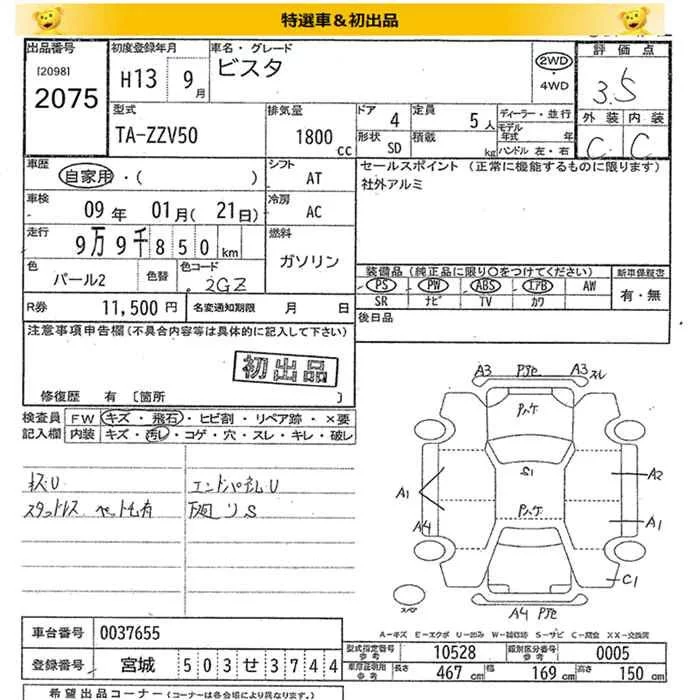 特選車＆初出品
出品番号
[2098]
2075
初度登録年月
H13 9月
車名・グレード
ビスタ
2WD
・
4WD
評価点
3.5
外装 内装
C C
型式
TA-ZZV50
排気量
1800 cc
ドア 4
定員 5人
形状 SD
積載 kg
ディーラー・並行
モデル年式 年
ハンドル 左・右
車歴
自家用・( )
シフト
AT
車検
09年 01月(21日)
冷房
AC
走行
9万9千850km
燃料
ガソリン
色
パール2
色替
色コード
2GZ
R券 11,500円
名変通知期限 月 日
セールスポイント (正常に機能するものに限ります)
社外アルミ
装備品(純正品に限り○をつけてください)
PS PW ABS エアB AW
SR ナビ TV カワ
新車保証書
有・無
後日品
注意事項申告欄(不具合内容等は具体的に記入して下さい)
初出品
修復歴 有 [箇所 ]
検査員 FW キズ・飛石・ヒビ割・リペア跡・×要
記入欄 内装 キズ・汚レ・コゲ・穴・スレ・キレ・破レ
キズU
エンドパネルU
スタットレス ペット毛有
下廻りS
A3 A3スレ
S1
A1
A2
A4
A1
C1
A4
スペア
A－キズ E－エクボ U－凹み W－補修跡 S－サビ C－腐食 XX－交換済
車台番号 0037655
登録番号 宮城 503せ3744
型式指定番号参考 10528
類別区分番号参考 0005
車庫証明用参考 長さ 467cm 幅 169cm 高さ 150cm
希望出品コーナー(コーナーは各会場により異なります。)